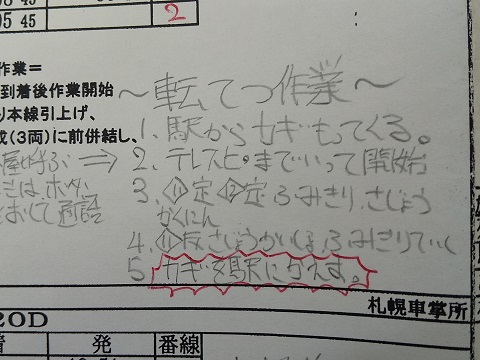 05 45
2
作業＝
到着後作業開始
り本線引上げ、
成(3両)に前併結し、
屋呼ぶ⇒
ミは、ボタン
おして通話
～転てつ作業～
1、駅からカギもってくる。
2、テレスピ・までいって開始
3、⑪定⑫定ふみきり、さじょう
かくにん
4、⑪反さじょうかいじょ、ふみきりてい
5 カギを駅にかえす。
札幌車掌所
20D
発
番線